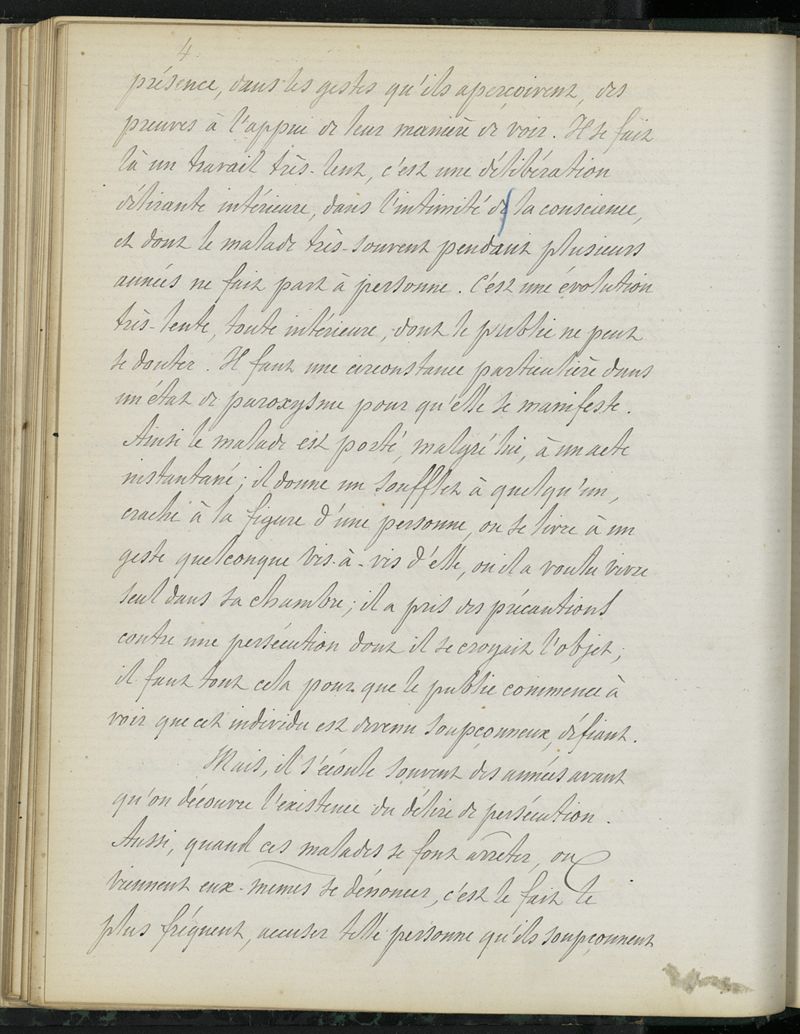 4
présence, dans les gestes qu'ils aperçoivent, des
preuves à l'appui de leur manière de voir. Il se fait
là un travail très-lent, c'est une délibération
délirante intérieure, dans l'intimité de la conscience,
et dont le malade très-souvent pendant plusieurs
années ne fait part à personne. C'est une évolution
très-lente, toute intérieure, dont le public ne peut
se douter. Il faut une circonstance particulière dans
un état de paroxysme pour qu'elle se manifeste.
Ainsi le malade est porté, malgré lui, à un acte
instantané; il donne un soufflet à quelqu'un,
crache à la figure d'une personne, ou se livre à un
geste quelconque vis-à-vis d'elle, ou il a voulu vivre
seul dans sa chambre; il a pris des précautions
contre une persécution dont il se croyait l'objet;
il faut tout cela pour que le public commence à
voir que cet individu est devenu soupçonneux, défiant.
Mais, il s'écoule souvent des années avant
qu'on découvre l'existence du délire de persécution.
Aussi, quand ces malades se font arrêter, ou
viennent eux-mêmes se dénoncer, c'est le fait le
plus fréquent, accuser telle personne qu'ils soupçonnent